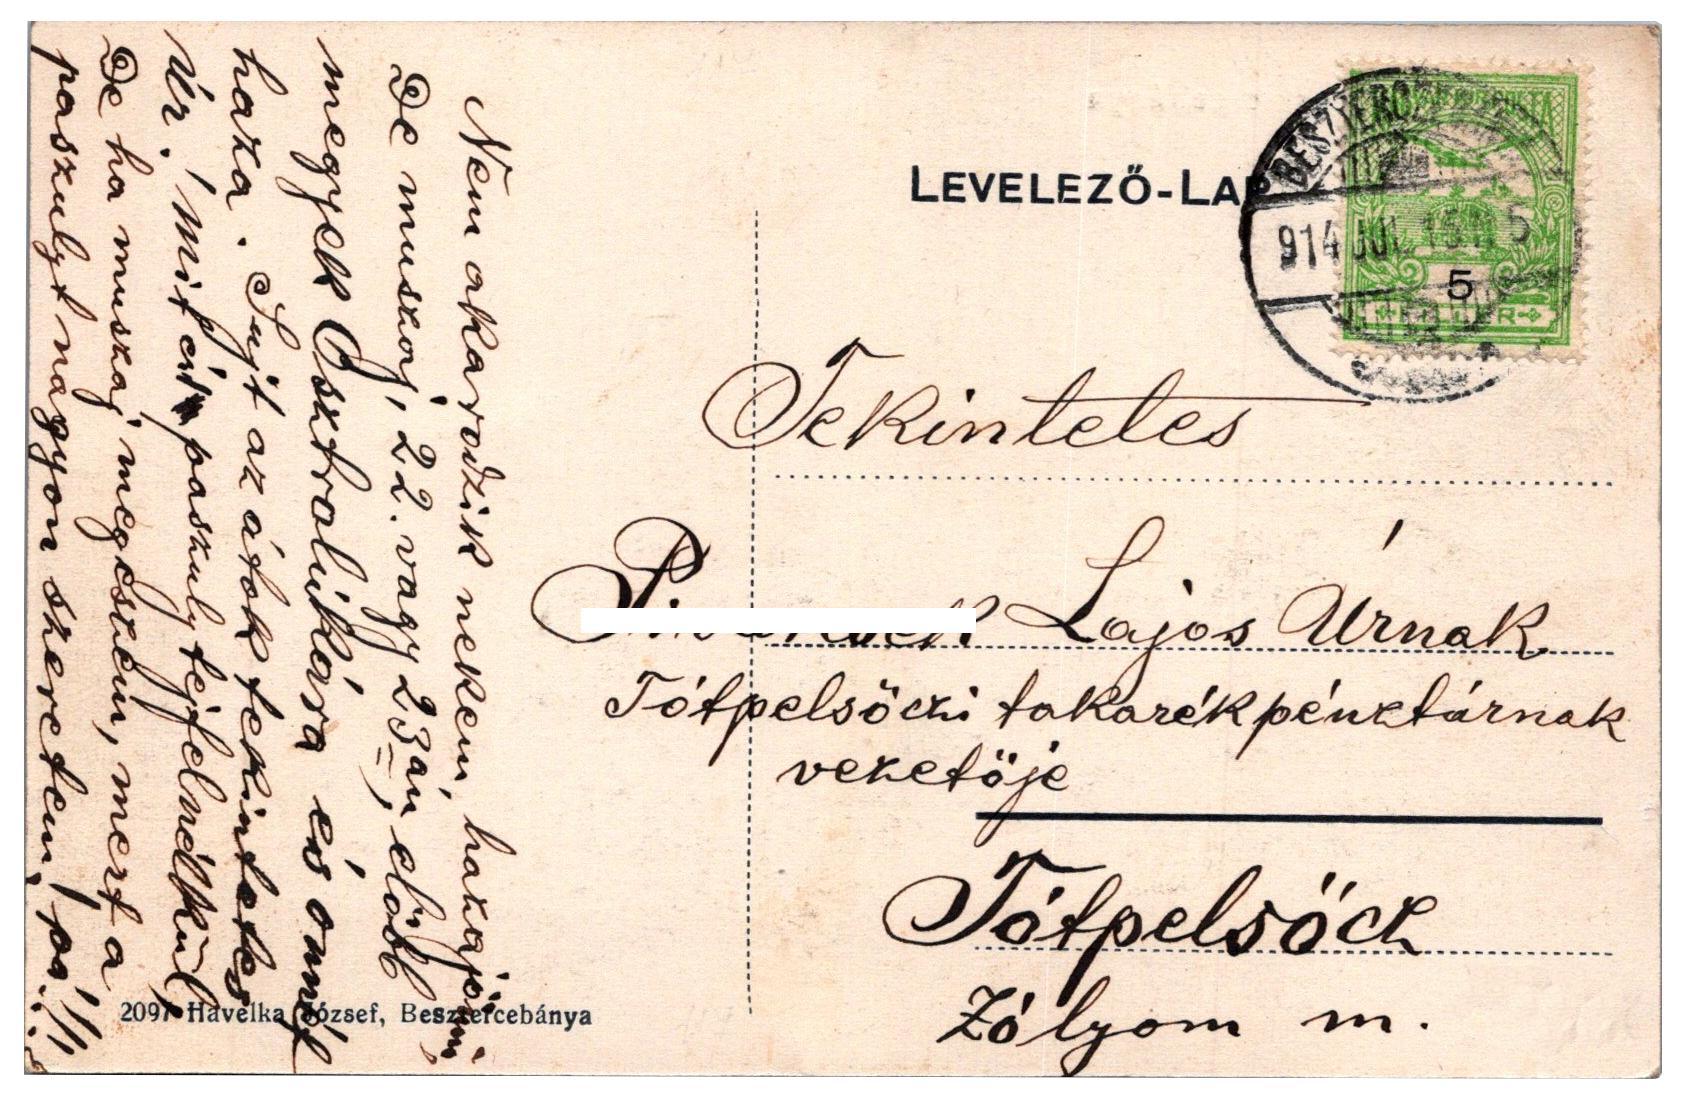 LEVELEZŐ-LAP
BESZTERCE
914 JUL. 15 N 5
5
FILLÉR
Nem akarodzik nekem hazajönni.
De muszáj, 22. vagy 23án, előbb
megyek Osztralukára és onnét
haza. Sujt az átok tekintetes
Úr! Mit ér paszuly tejfel nélkül,
De ha muszáj megeszem, mert a
paszulyt nagyon szeretem, pá!!!
Tekintetes
Lajos Úrnak
Tótpelsőczi takarékpénztárnak
vezetője
Tótpelsőcz
Zólyom m.
2097 Havelka József, Besztercebánya